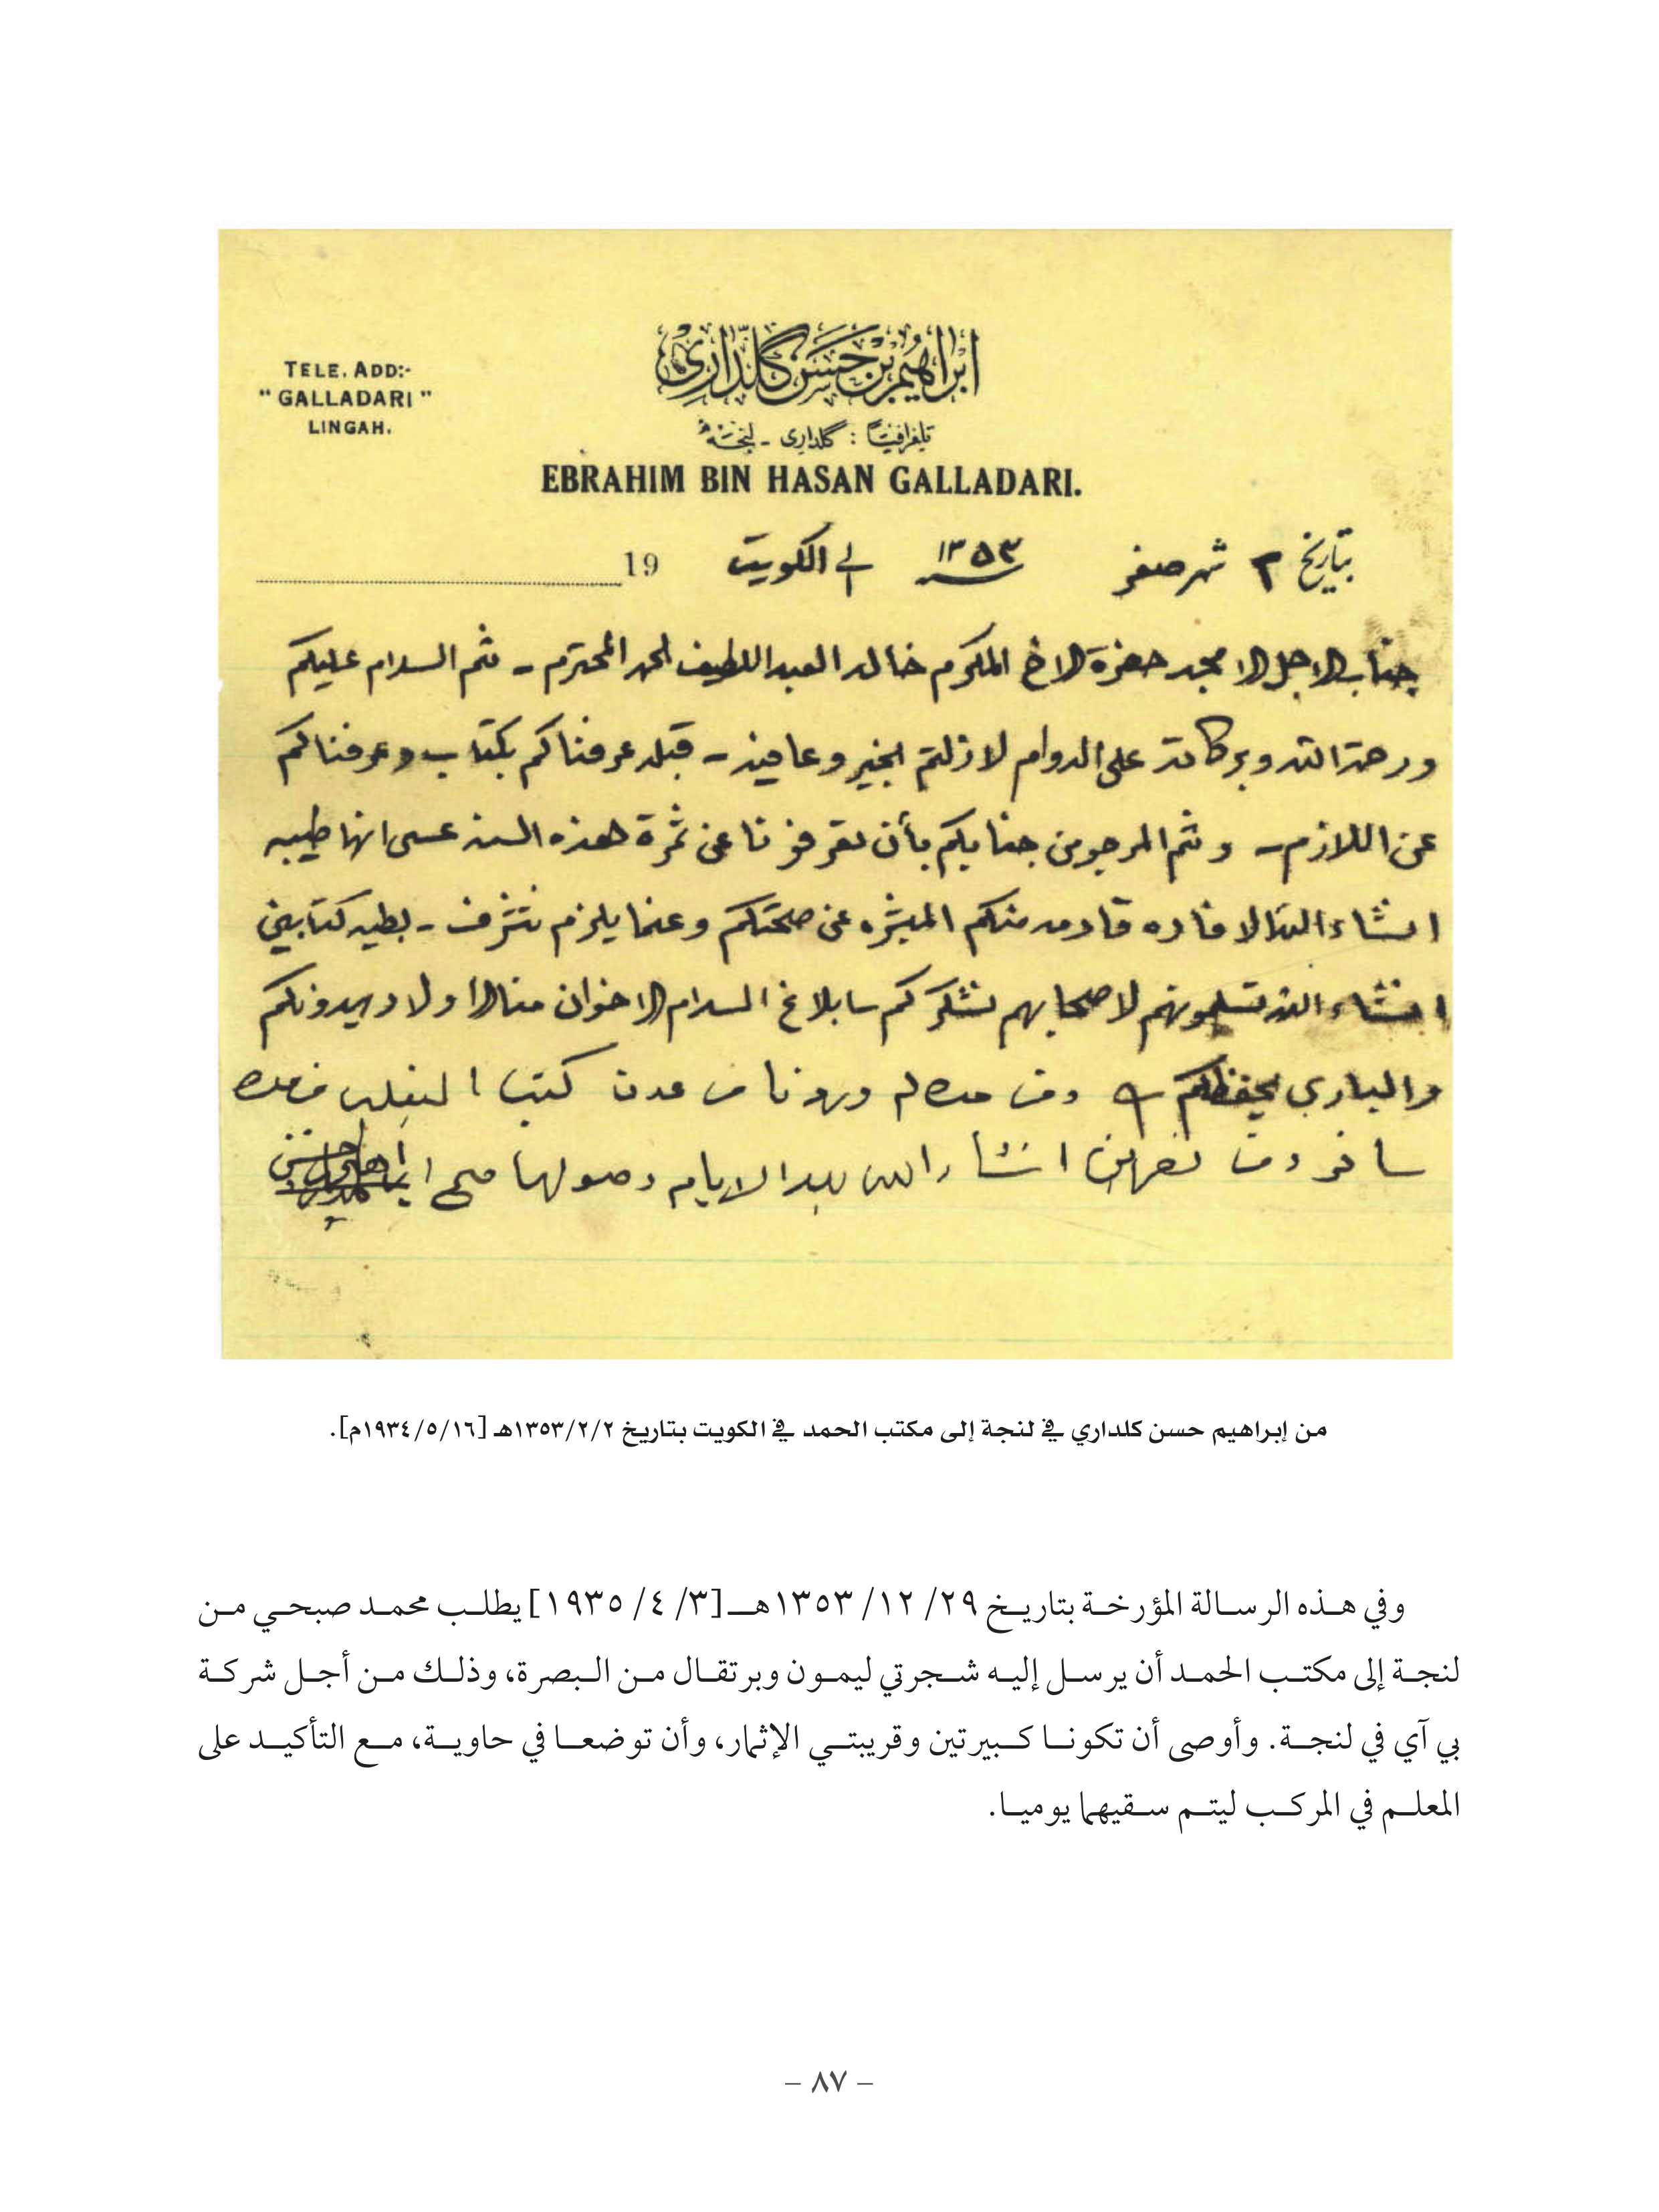 ابراهيم بن حسن گلداري
TELE. ADD:-
"GALLADARI"
LINGAH.
تلغرافيًا : گلداري - لنجة
EBRAHIM BIN HASAN GALLADARI.
بتاريخ ٢ شهر صفر ١٣٥٣ الى الكويت 19
جناب الاجل الامجد حضرة الاخ المكرم خالد العبد اللطيف الحمد المحترم - ثم السلام عليكم
ورحمة الله وبركاته على الدوام لازلتم بخير وعافيه - قبله عرفناكم بكتاب وعرفناكم
عن اللازم - وثم المرجو من جنابكم بأن تعرفونا عن ثمرة هذه السنه عسى انها طيبه
انشاء الله الافاده قادمه منكم المبشره عن صحتكم وعنما يلزم نتشرف - بطيه كتابين
انشاء الله تسلمونهم لاصحابهم نشكركم سا بلاغ السلام الاخوان منا الاولاد يهدونكم
والباري يحفظكم ومن عدن كتب
سافر انشاء الله الايام وصولها صح ابراهيم حسن
من إبراهيم حسن كلداري في لنجة إلى مكتب الحمد في الكويت بتاريخ ١٣٥٣/٢/٢هـ [١٩٣٤/٥/١٦م].
وفي هذه الرسالة المؤرخة بتاريخ ٢٩/ ١٢/ ١٣٥٣هـ [٣/ ٤/ ١٩٣٥] يطلب محمد صبحي من
لنجة إلى مكتب الحمد أن يرسل إليه شجرتي ليمون وبرتقال من البصرة، وذلك من أجل شركة
بي آي في لنجة. وأوصى أن تكونا كبيرتين وقريبتي الإثمار، وأن توضعا في حاوية، مع التأكيد على
المعلم في المركب ليتم سقيهما يوميا.
– ٨٧ –